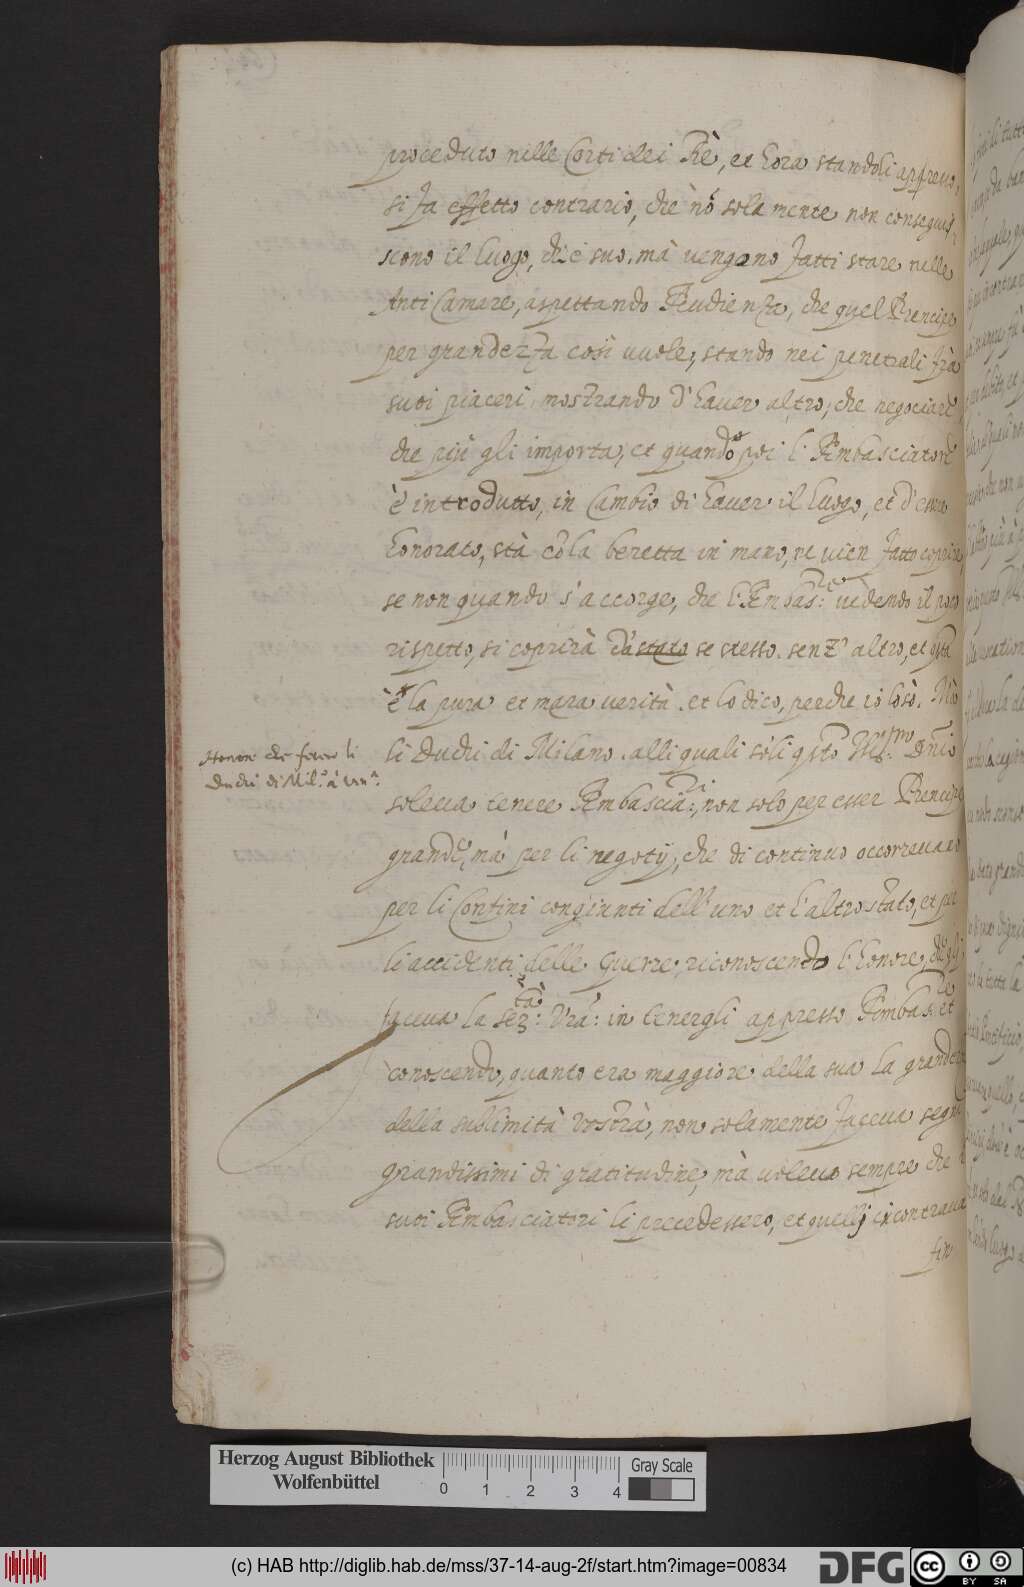 proceduto nelle Corti dei Rè, et hora standoli appresso,
si fa effetto contrario, che nõ solamente non consegui-
scono il luogo, ch'è suo, mà vengano fatti stare nelle
Anti Camare, aspettando Audienza, che quel Prencipe
per grandezza così vuole, stando nei penetrali frà
suoi piaceri, mostrando d'haver altro, che negociare
che più gli importa, et quando poi l'Ambasciatore
è introdutto, in Cambio di haver il luogo, et d'esser
honorato, stà cõ la beretta in mano, ne vien fatto coprire,
se non quando s'accorge, che l'Ambas:re vedendo il poco
rispetto, si coprirà da stato se stesso senz'altro, et qsta
è la pura et mera verità. et lo dico, perche io lo sò. Mà
Honori che fecero li
Duchi di Mil.o à Ven.a
li Duchi di Milano. alli quali sóli qsto Ill:mo Dñio
soleva tenere Ambascia:ri, non solo per esser Prencipe
grande, mà per li negotÿ, che di continuo occorrevano
per li Confini congiunti dell'uno et l'altro stato, et per
li accidenti delle guerre, riconoscendo l'honore, che gli
faceva la Ser:tà Vrã: in tenergli appresso Ambas:re et
conoscendo, quanto era maggiore della sua la grandezza
della sublimità vostra, non solamente faceva segni
grandissimi di gratitudine, mà voleva sempre che i
suoi Ambasciatori li precedessero, et quelli incontrava
fin
Herzog August Bibliothek
Wolfenbüttel
0 1 2 3 4
Gray Scale
(c) HAB http://diglib.hab.de/mss/37-14-aug-2f/start.htm?image=00834
DFG
cc BY SA